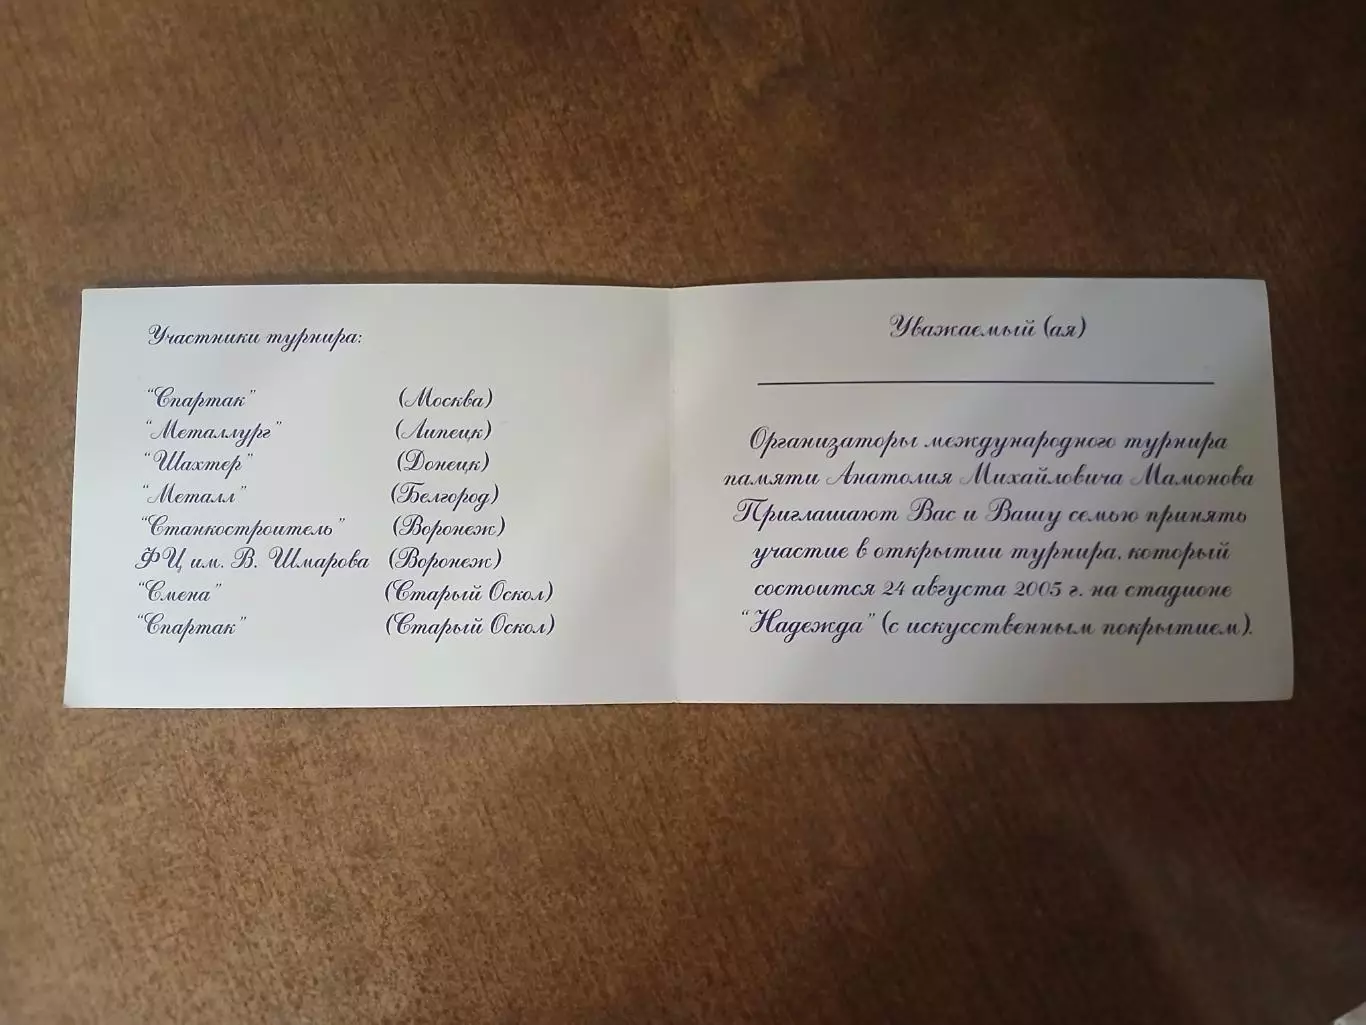 Участники турнира:
"Спартак" (Москва)
"Металлург" (Липецк)
"Шахтер" (Донецк)
"Металл" (Белгород)
"Станкостроитель" (Воронеж)
ФЦ им. В. Шмарова (Воронеж)
"Смена" (Старый Оскол)
"Спартак" (Старый Оскол)
Уважаемый (ая)
Организаторы международного турнира
памяти Анатолия Михайловича Мамонова
Приглашают Вас и Вашу семью принять
участие в открытии турнира, который
состоится 24 августа 2005 г. на стадионе
"Надежда" (с искусственным покрытием).